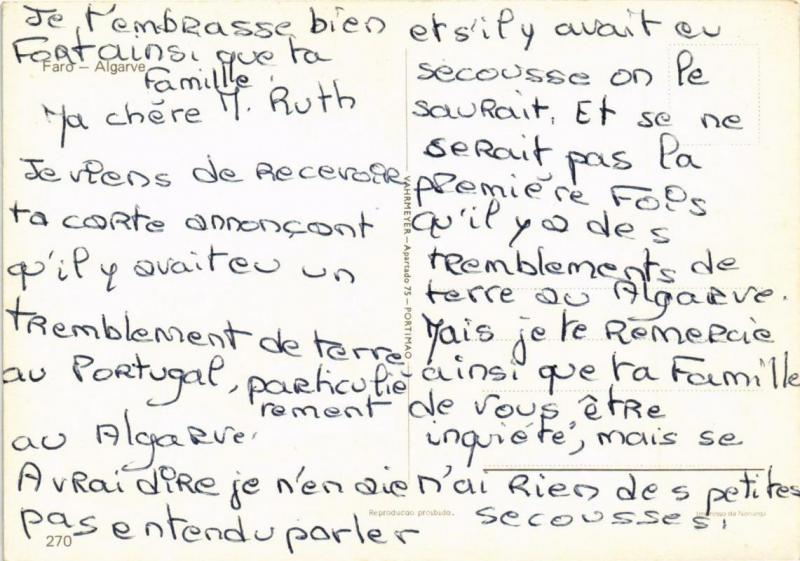 Je t'embrasse bien
Fort ainsi que ta
Famille.
Faro – Algarve
Ma chère M. Ruth
Je viens de recevoir
ta carte annonçant
qu'il y avait eu un
tremblement de terre
au Portugal, particuliè
rement
au Algarve.
A vrai dire je n'en aie
pas entendu parler
270
VAHRMEYER – Apartado 75 – PORTIMAO
et s'il y avait eu
secousse on le
saurait. Et se ne
serait pas la
première Fois
qu'il y a des
tremblements de
terre au Algarve.
Mais je te remercie
ainsi que ta Famille
de vous être
inquiété, mais se
n'ai rien des petites
secousses.
Reproducao proibida.